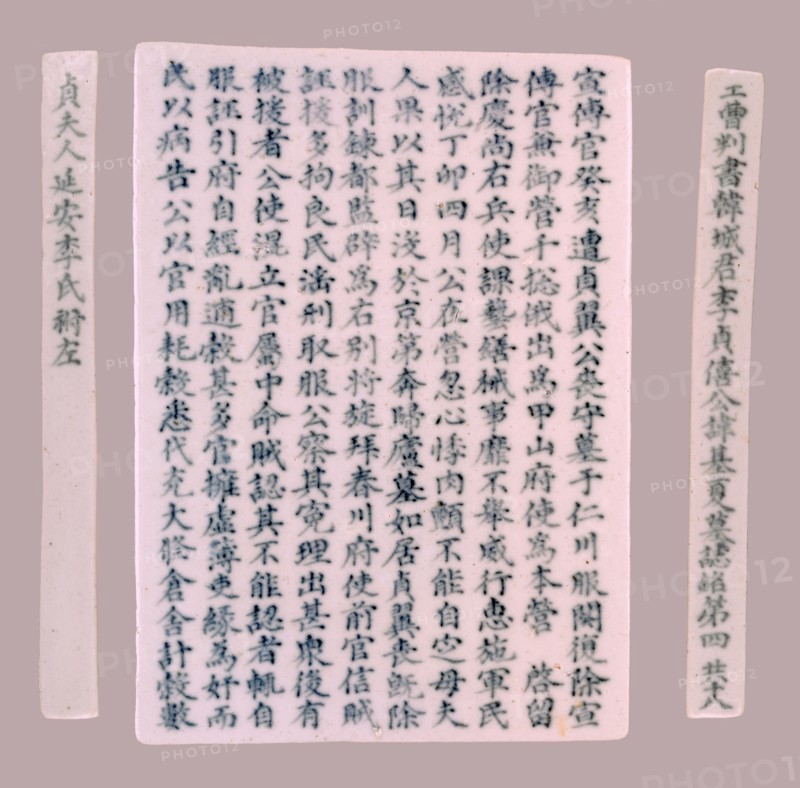 工曹判書韓城君李貞僖公諱基夏墓誌銘第四 共十八
宣傳官癸亥遭貞翼公喪守墓于仁川服闋復除宣
傳官兼御營千摠俄出爲甲山府使爲本營 啓留
除慶尚右兵使課藝繕械事靡不擧威行惠施軍民
感悅丁卯四月公在營忽心悸肉顫不能自定母夫
人果以其日沒於京第奔歸廬墓如居貞翼喪旣除
服訓鍊都監辟爲右別將旋拜春川府使前官信賊
誣援多拘良民濫刑取服公察其寃理出甚衆後有
被援者公使混立官屬中命賊認其不能認者輒自
服誣引府自經亂逋穀甚多官擁虛簿吏緣爲奸而
民以病告公以官用耗穀悉代充大修倉舍計穀數
貞夫人延安李氏祔左
PHOTO12